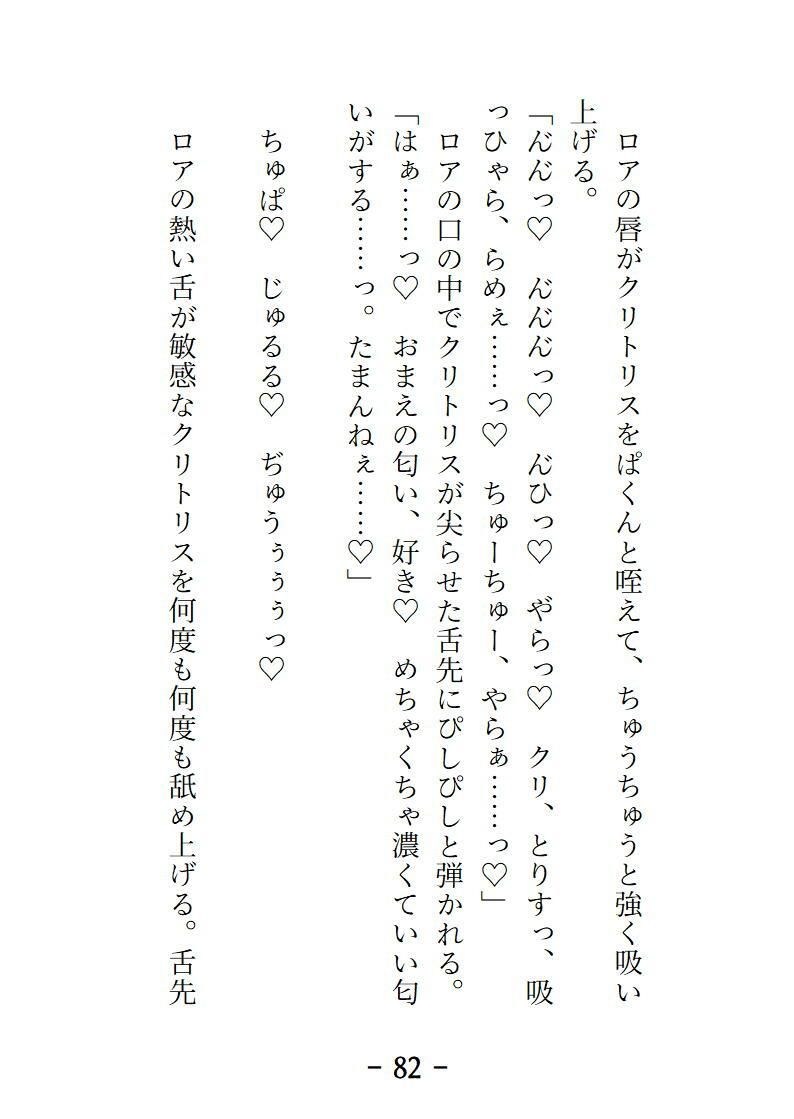 ロアの唇がクリトリスをぱくんと咥えて、ちゅうちゅうと強く吸い
上げる。
「ん゛ん゛っ♡　ん゛ん゛ん゛っ♡　ん゛ひっ♡　や゛らっ♡　クリ、とりすっ、吸
っひゃら、らめぇ……っ♡　ちゅーちゅー、やらぁ……っ♡」
　ロアの口の中でクリトリスが尖らせた舌先にぴしぴしと弾かれる。
「はぁ……っ♡　おまえの匂い、好き♡　めちゃくちゃ濃くていい匂
いがする……っ。たまんねぇ……♡」
　ちゅぱ♡　じゅるる♡　ぢゅうぅぅぅっ♡
　ロアの熱い舌が敏感なクリトリスを何度も何度も舐め上げる。舌先
- 82 -